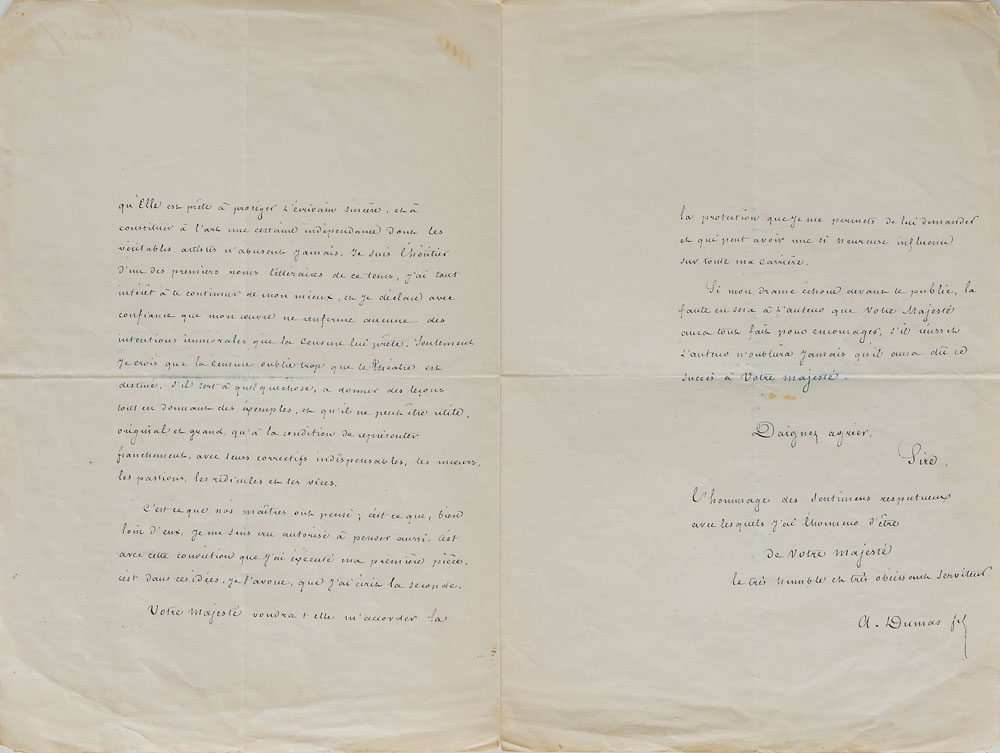 qu'Elle est prête à protéger l'écrivain sincère, et à
constituer à l'art une certaine indépendance dont les
véritables artistes n'abusent jamais. Je suis l'héritier
d'un des premiers noms littéraires de ce tems, j'ai tout
intérêt à le continuer de mon mieux, et je déclare avec
confiance que mon œuvre ne renferme aucune des
intentions immorales que la Censure lui prête. Seulement
je crois que la Censure oublie trop que le Théâtre est
destiné, s'il sert à quelque chose, a donner des leçons
tout en donnant des exemples, et qu'il ne peut être utile,
original et grand, qu'à la condition de représenter
franchement, avec leurs correctifs indispensables, les mœurs,
les passions, les ridicules et les vices.
C'est ce que nos maîtres ont pensé ; c'est ce que, bien
loin d'eux, je me suis cru autorisé à penser aussi. C'est
avec cette conviction que j'ai éxécuté ma première pièce,
c'est dans ces idées, je l'avoue, que j'ai écrit la seconde.
Votre Majesté voudra t elle m'accorder la
la protection que je me permets de lui demander
et qui peut avoir une si heureuse influence
sur toute ma carrière.
Si mon drame échoue devant le public, la
faute en sera à l'auteur que Votre Majesté
aura tout fait pour encourager, s'il réussit
l'auteur n'oublira jamais qu'il aura dû ce
succès à Votre Majesté.
Daignez agréer,
Sire,
L'hommage des sentimens respectueux
avec lesquels j'ai l'honneur d'être
de Votre Majesté
le très humble et très obéissant serviteur
A. Dumas fils